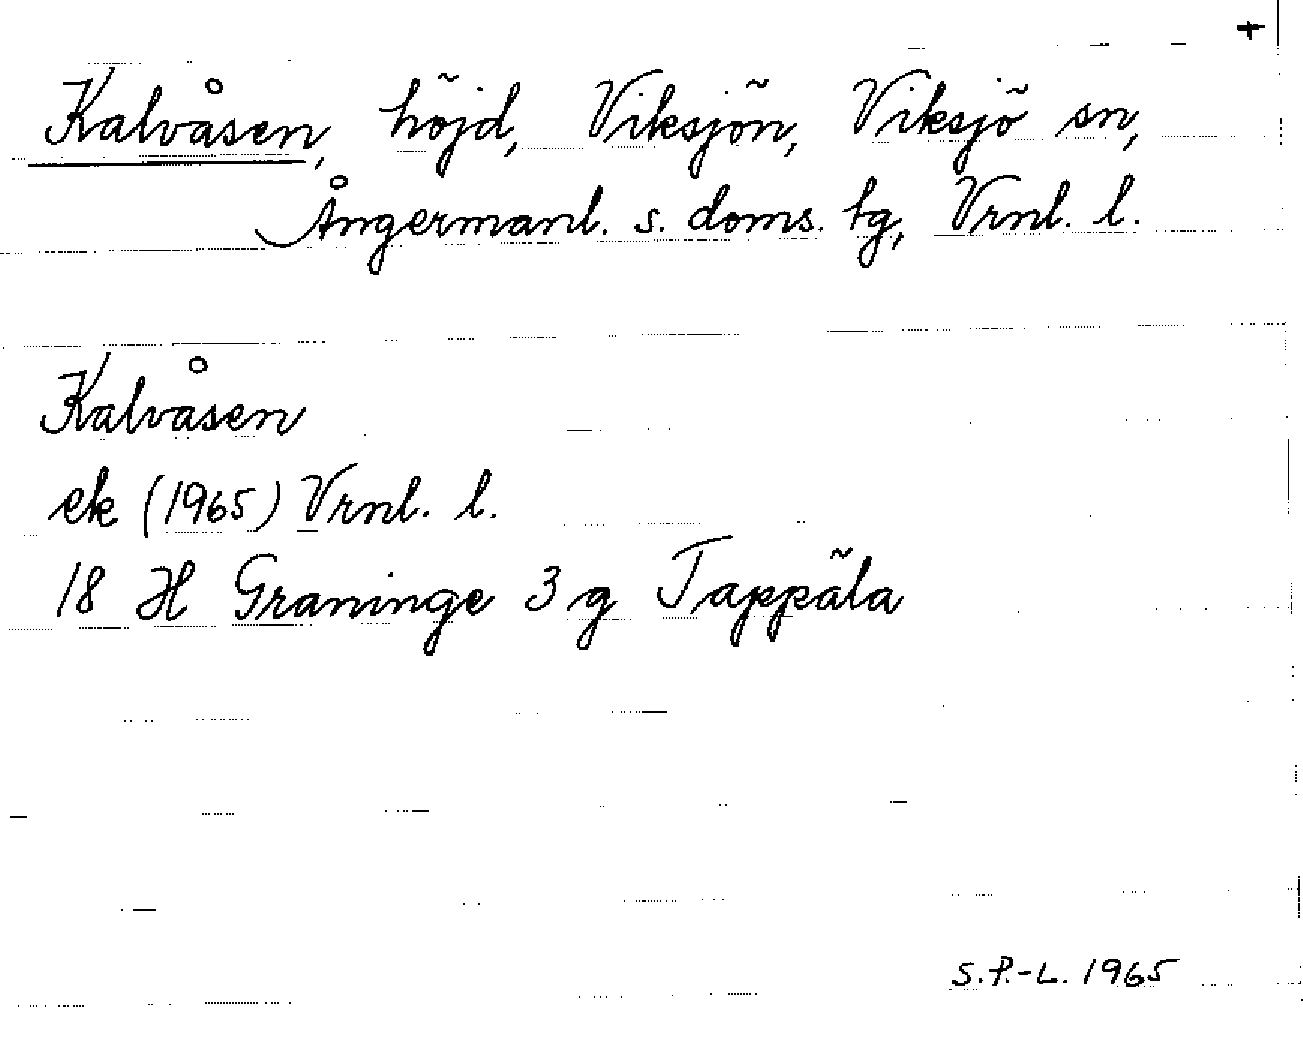 +
Kalvåsen, höjd, Viksjön, Viksjö sn,
Ångermanl. s. doms. tg, Vrnl. l.
Kalvåsen
ek (1965) Vrnl. l.
18 H Graninge 3 g Tappäla
S.P.-L. 1965